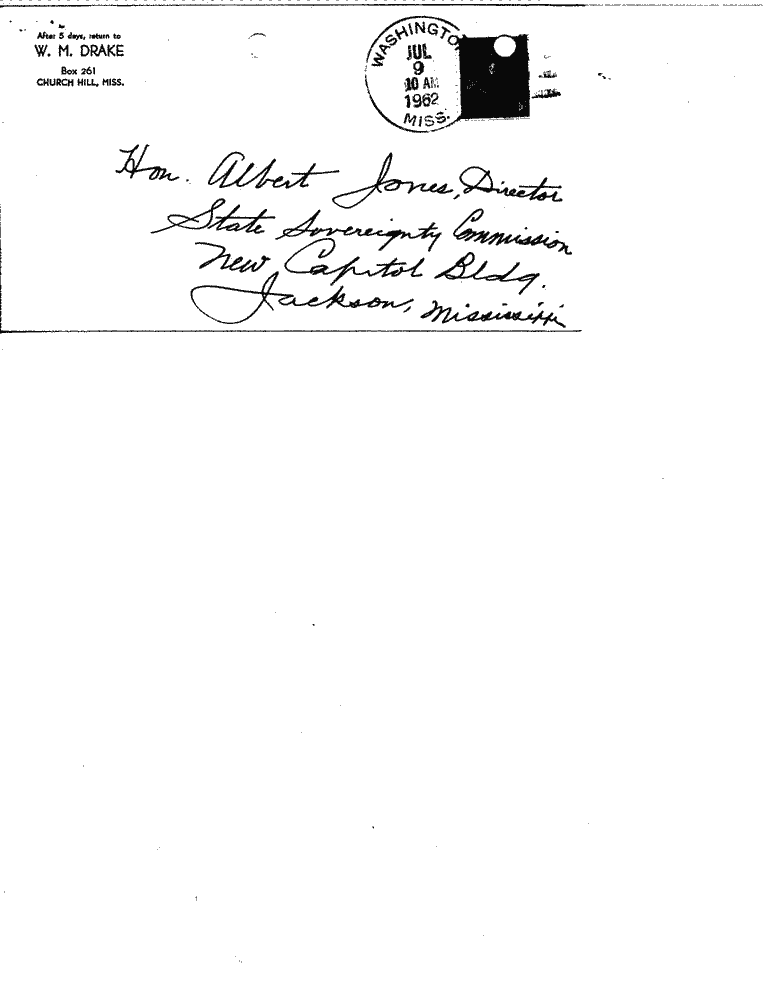 After 5 days, return to
W. M. DRAKE
Box 261
CHURCH HILL, MISS.
WASHINGTON
JUL
9
10 AM
1962
MISS.
Hon. Albert Jones, Director
State Sovereignty Commission
New Capitol Bldg.
Jackson, Mississippi